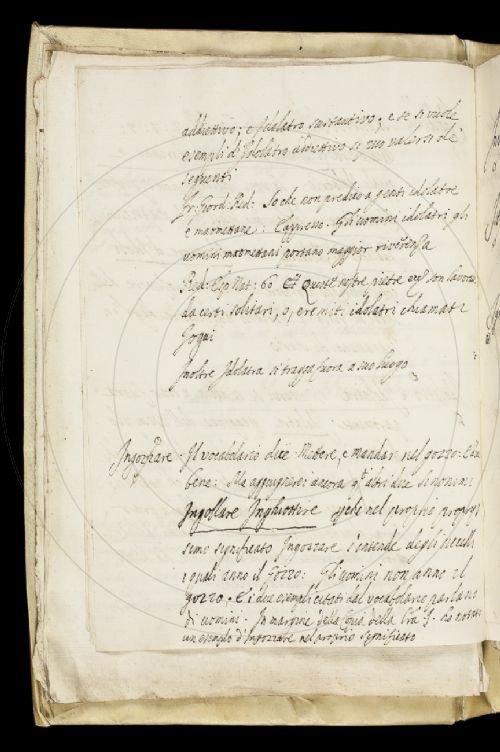 addiettivo; e Idolatro sustantivo; e se si vuole
esempli di Idolatro adiettivo si può valersi de
seguenti
Fr: Giord: Red: So che non predico a genti idolatre
e maomettane: Cappresso. Gli uomini idolatri gli
uomini maomettani portano maggior riverenza
Red: Esp: Nat: 60 Et queste nostre pietre son lavora:
da certi solitari, o, eremiti idolatri chiamati
Jogui
Inoltre Idolatra si tragga fuora a suo luogo
Ingozzare Il vocabolario dice Mettere, e mandar nel gozzo:
bene: Ma aggiugnerei ancora gl'altri due sinonimi
Ingollare Inghiottire nel proprio propris
simo significato Ingozzare s'intende degli uccelli
i quali anno il gozzo: Gli uomini non anno il
gozzo. E i due esempli citati dal vocabolario parlano
di uomini. In margine della della ho notato
un esemplo d'Ingozzare nel proprio significato